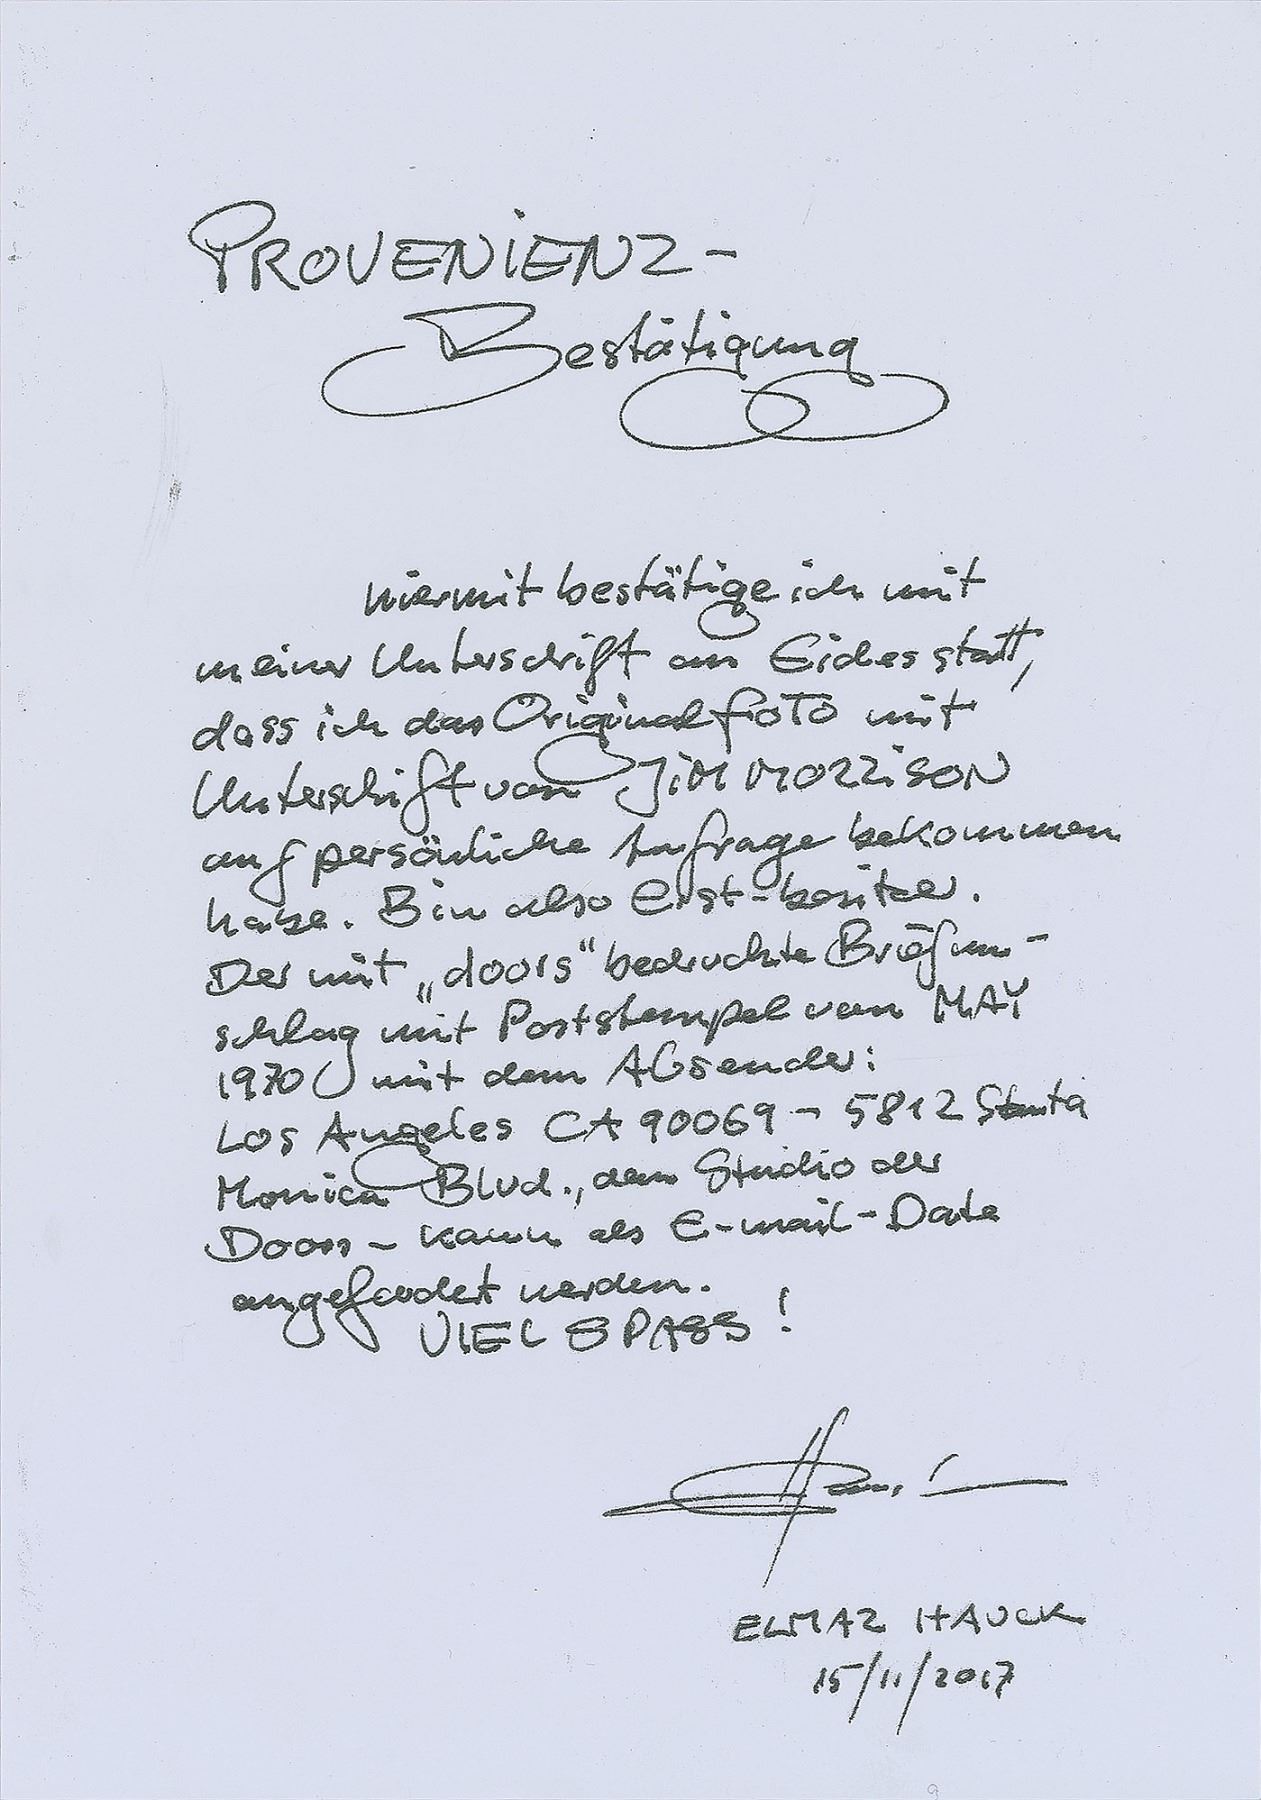 PROVENIENZ-
Bestätigung
hiermit bestätige ich mit
meiner Unterschrift an Eides statt,
dass ich das Originalfoto mit
Unterschift von JiM MORRISON
auf persönliche Anfrage bekommen
habe. Bin also Erst-besitzer.
Der mit „doors“ bedruckte Briefum-
schlag mit Poststempel vom MAY
1970 mit dem Absender:
Los Angeles CA 90069 - 5812 Santa
Monica Blvd., dem Studio der
Doors - kann als E-mail-Datei
angefordert werden.
VIEL SPASS!
ELMAR HAUCK
15/11/2017